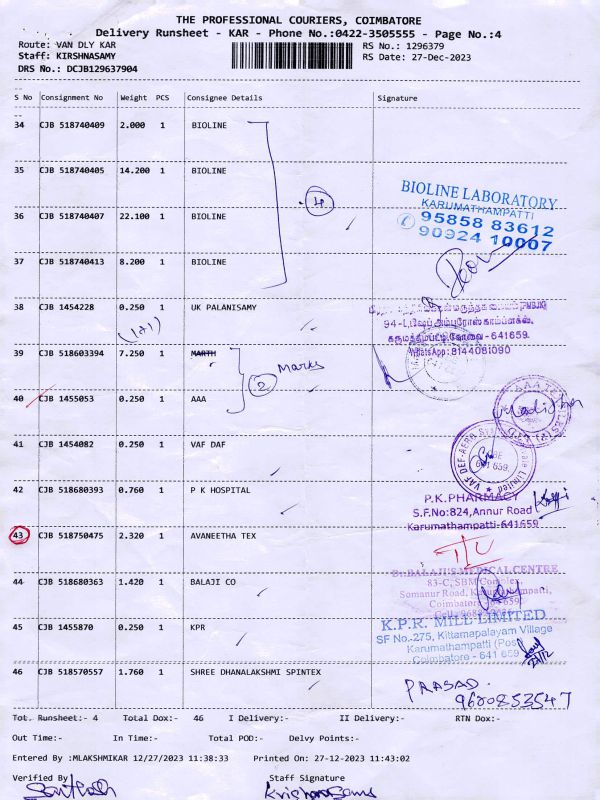 THE PROFESSIONAL COURIERS, COIMBATORE
Delivery Runsheet - KAR - Phone No.:0422-3505555 - Page No.:4
Route: VAN DLY KAR RS No.: 1296379
Staff: KIRSHNASAMY RS Date: 27-Dec-2023
DRS No.: DCJB129637904
S No Consignment No Weight PCS Consignee Details Signature
34 CJB 518740409 2.000 1 BIOLINE
35 CJB 518740405 14.200 1 BIOLINE
4
BIOLINE LABORATORY
KARUMATHAMPATTI
36 CJB 518740407 22.100 1 BIOLINE
95858 83612
90924 10007
37 CJB 518740413 8.200 1 BIOLINE
38 CJB 1454228 0.250 1 UK PALANISAMY
94-டி,ஷேப் அம்புரோஸ் காம்ப்ளக்ஸ்,
கருமத்தம்பட்டி,கோவை-641659.
WhatsApp:8144081090
(171)
39 CJB 518603394 7.250 1 MARTH
2 Marks
40 CJB 1455053 0.250 1 AAA
41 CJB 1454082 0.250 1 VAF DAF
VAF DEF-AERO
641 659.
42 CJB 518680393 0.760 1 P K HOSPITAL
P.K.PHARMACY
S.F.No:824,Annur Road
Karumathampatti-641659
43 CJB 518750475 2.320 1 AVANEETHA TEX
44 CJB 518680363 1.420 1 BALAJI CO
Dr.BALAJI'S MEDICAL CENTRE
83-C, SBM Complex,
Somanur Road, Karumathampatti,
45 CJB 1455870 0.250 1 KPR
K.P.R. MILL LIMITED
SF No.-275, Kittampalayam Village
Karumathampatti (Post)
Coimbatore - 641 659
46 CJB 518570557 1.760 1 SHREE DHANALAKSHMI SPINTEX
PRASAD
9600853547
Tot. Runsheet:- 4 Total Dox:- 46 I Delivery:- II Delivery:- RTN Dox:-
Out Time:- In Time:- Total POD:- Delvy Points:-
Entered By :MLAKSHMIKAR 12/27/2023 11:38:33 Printed On: 27-12-2023 11:43:02
Verified By Staff Signature
Santhosh Krishnasamy